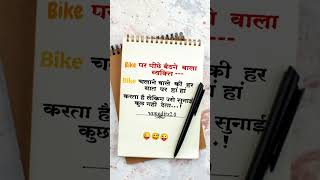 Bike पर पीछे बैठने वाला
व्यक्ति ---
Bike चलाने वाले की हर
बात पर हां हां
करता है लेकिन उसे सुनाई
कुछ नहीं देता...!